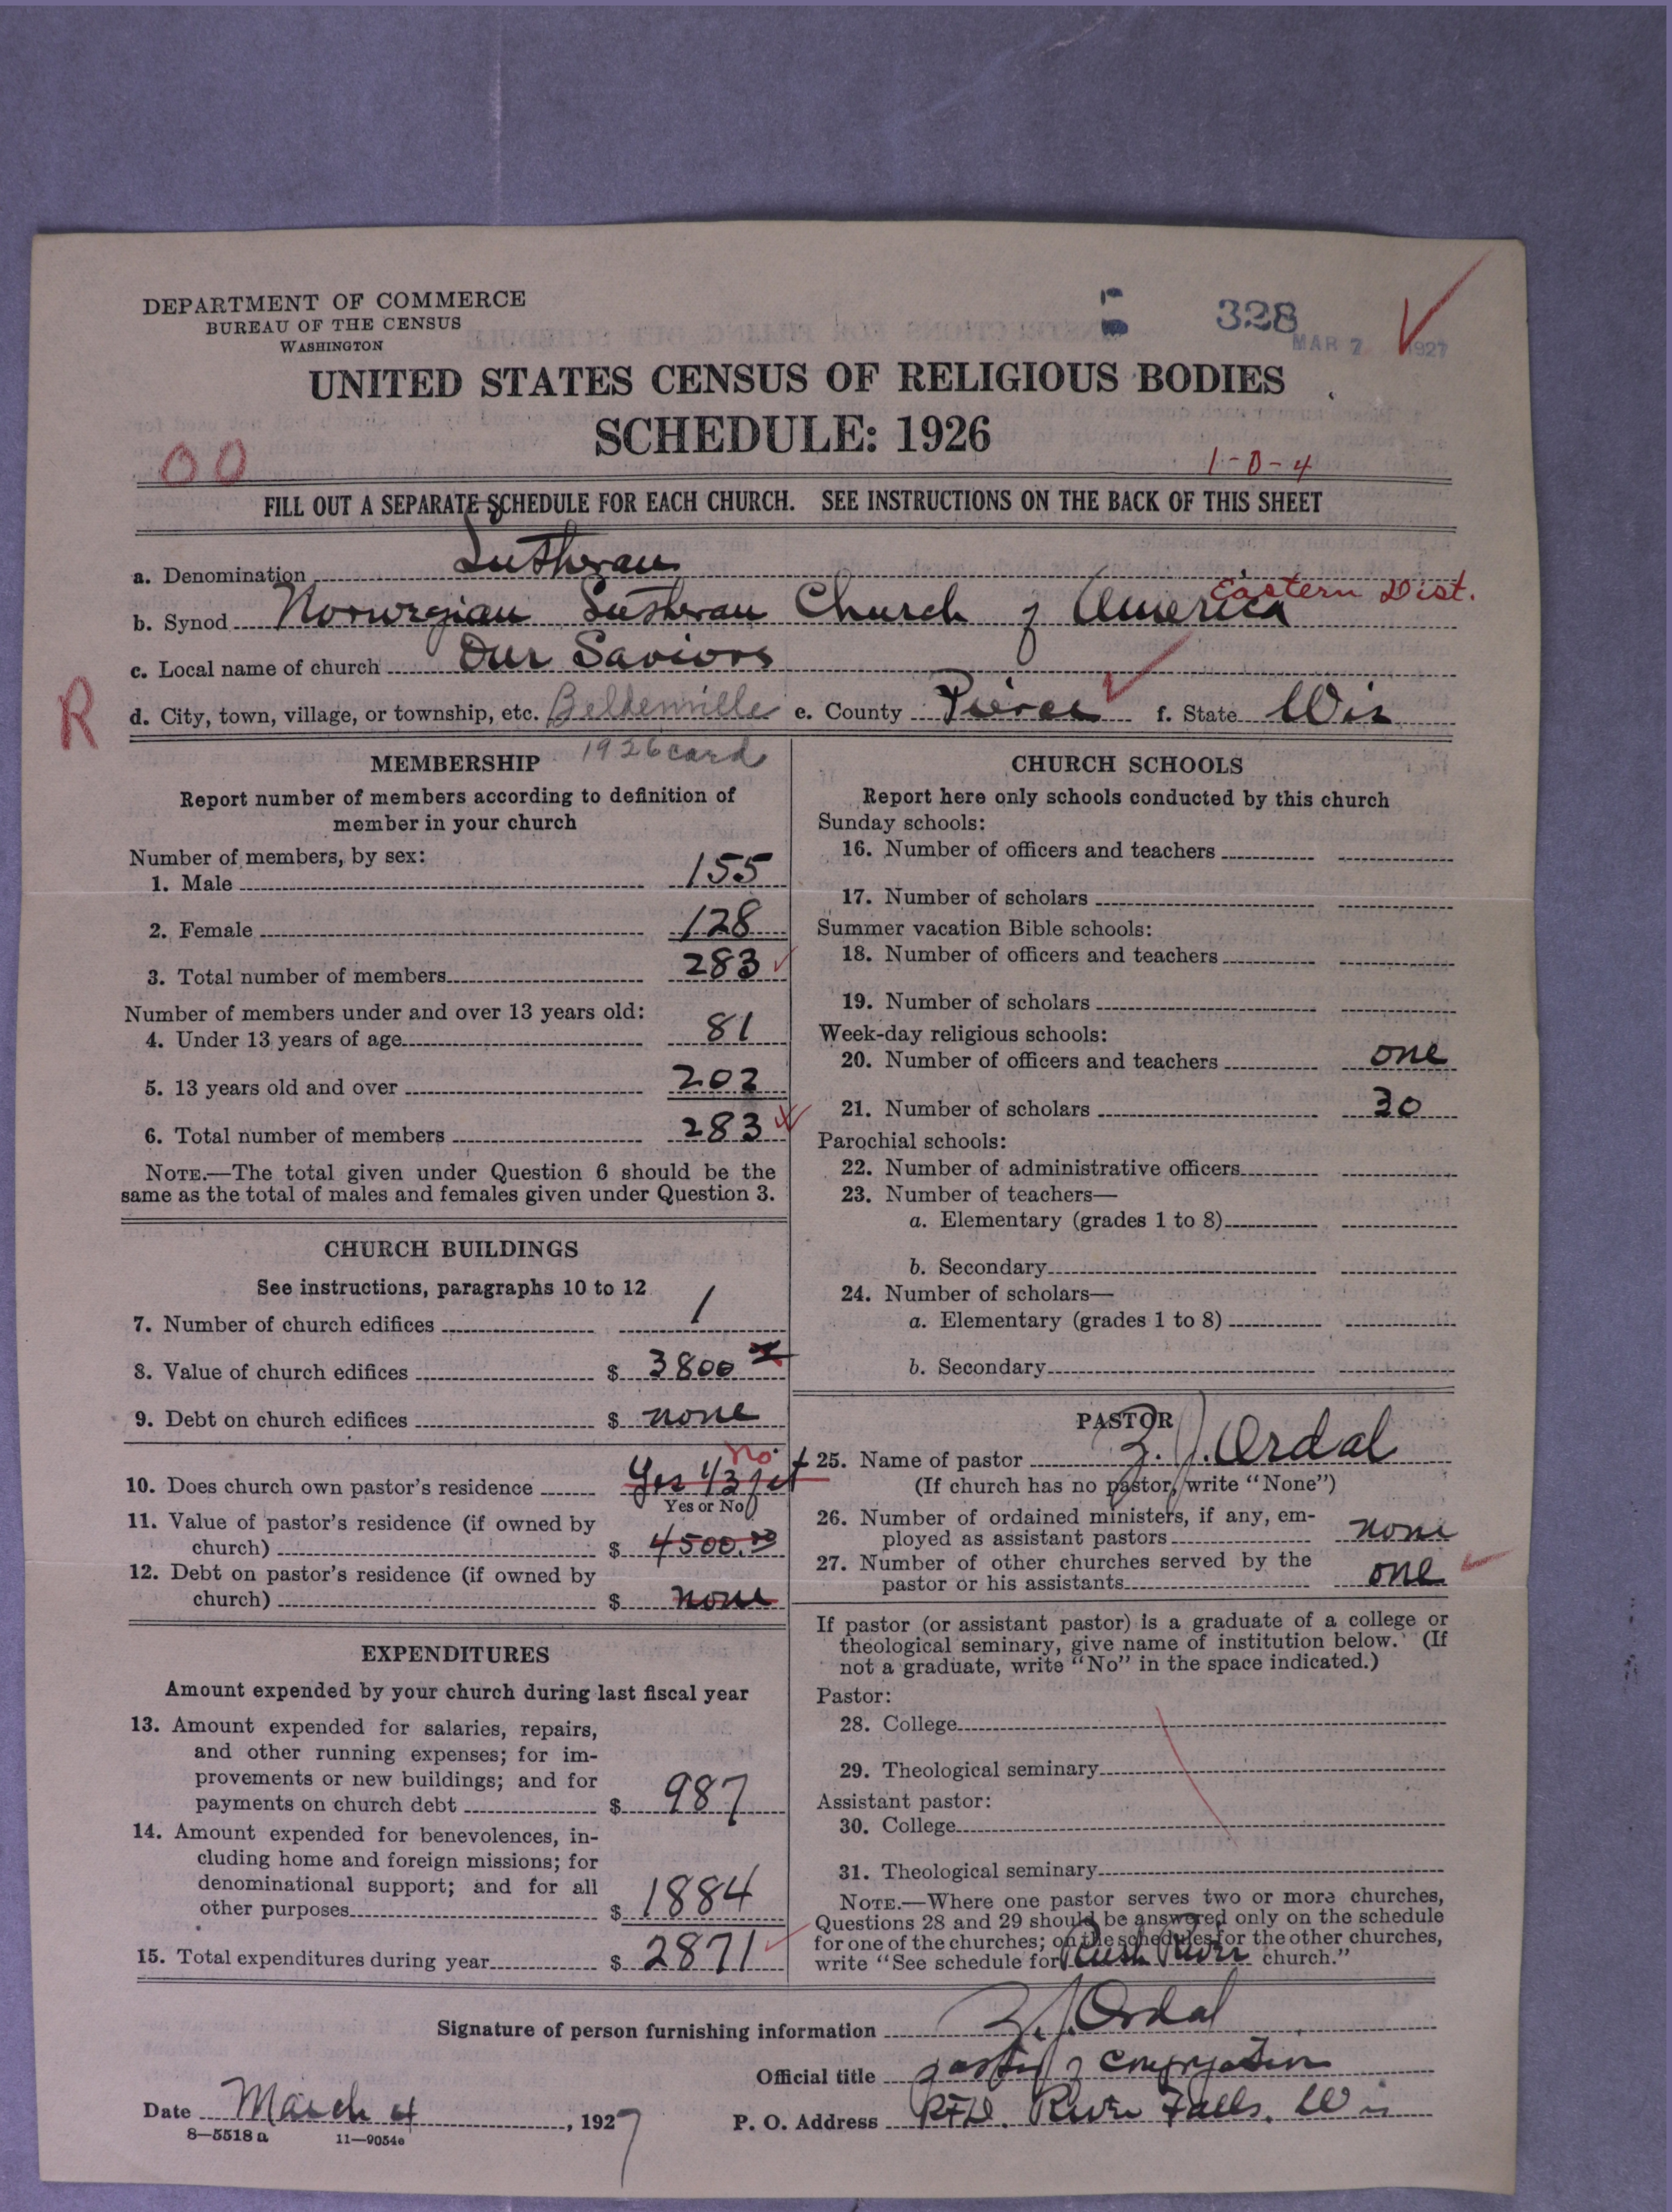 DEPARTMENT OF COMMERCE
BUREAU OF THE CENSUS
WASHINGTON
328
MAR 7 1927
UNITED STATES CENSUS OF RELIGIOUS BODIES
SCHEDULE: 1926
00
1-0-4
FILL OUT A SEPARATE SCHEDULE FOR EACH CHURCH. SEE INSTRUCTIONS ON THE BACK OF THIS SHEET
a. Denomination Lutheran
Eastern Dist.
b. Synod Norwegian Lutheran Church of America
c. Local name of church Our Saviors
R
d. City, town, village, or township, etc. Beldenville e. County Pierce f. State Wis
1926 card
MEMBERSHIP
Report number of members according to definition of
member in your church
Number of members, by sex:
1. Male 155
2. Female 128
3. Total number of members 283
Number of members under and over 13 years old:
4. Under 13 years of age 81
5. 13 years old and over 202
6. Total number of members 283
NOTE.—The total given under Question 6 should be the
same as the total of males and females given under Question 3.
CHURCH BUILDINGS
See instructions, paragraphs 10 to 12
7. Number of church edifices 1
8. Value of church edifices $ 3800
9. Debt on church edifices $ none
No
10. Does church own pastor's residence Yes 1/3
Yes or No
11. Value of pastor's residence (if owned by
church) $ 4500.00
12. Debt on pastor's residence (if owned by
church) $ none
EXPENDITURES
Amount expended by your church during last fiscal year
13. Amount expended for salaries, repairs,
and other running expenses; for im-
provements or new buildings; and for
payments on church debt $ 987
14. Amount expended for benevolences, in-
cluding home and foreign missions; for
denominational support; and for all
other purposes $ 1884
15. Total expenditures during year $ 2871
CHURCH SCHOOLS
Report here only schools conducted by this church
Sunday schools:
16. Number of officers and teachers
17. Number of scholars
Summer vacation Bible schools:
18. Number of officers and teachers
19. Number of scholars
Week-day religious schools:
20. Number of officers and teachers one
21. Number of scholars 30
Parochial schools:
22. Number of administrative officers
23. Number of teachers—
a. Elementary (grades 1 to 8)
b. Secondary
24. Number of scholars—
a. Elementary (grades 1 to 8)
b. Secondary
PASTOR
25. Name of pastor Z. J. Ordal
(If church has no pastor, write "None")
26. Number of ordained ministers, if any, em-
ployed as assistant pastors none
27. Number of other churches served by the
pastor or his assistants one
If pastor (or assistant pastor) is a graduate of a college or
theological seminary, give name of institution below. (If
not a graduate, write "No" in the space indicated.)
Pastor:
28. College
29. Theological seminary
Assistant pastor:
30. College
31. Theological seminary
NOTE.—Where one pastor serves two or more churches,
Questions 28 and 29 should be answered only on the schedule
for one of the churches; on the schedules for the other churches,
write "See schedule for Rush River church."
Signature of person furnishing information Z. J. Ordal
Official title pastor of congregation
Date March 4, 1927 P. O. Address RFD. River Falls, Wis
8—5518 a 11—9054e